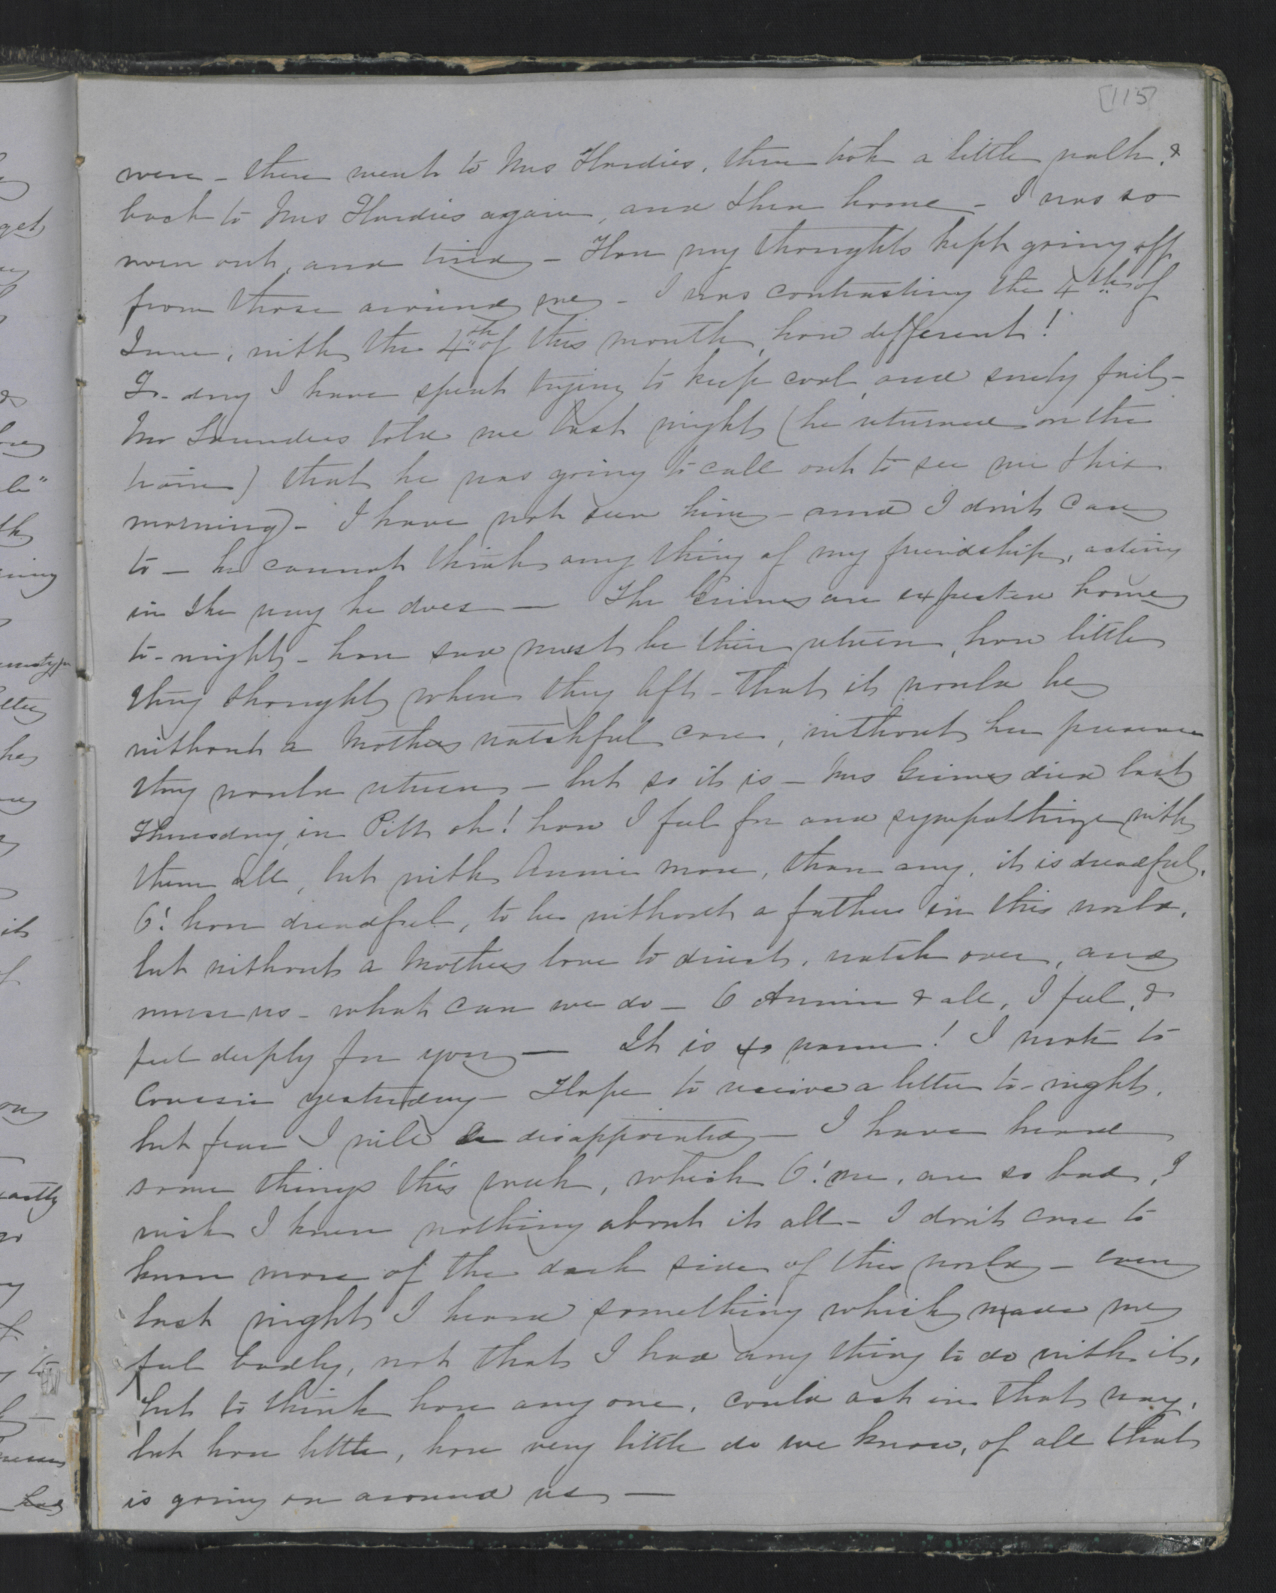 [115]
were - there went to Mrs Hardies, then took a little walk, &
back to Mrs Hardies again, and then home - I was so
worn out, and tired - How my thoughts kept going off
from those around me - I was contrasting the 4th of
June, with the 4th of this month, how different!
To-day I have spent trying to keep cool and surely fail -
Mr Saunders told me last night (he returned on the
train) that he was going to call out to see me this
morning - I have not seen him - and I don't care
to - he cannot think any thing of my friendship, acting
in the way he does - The Grimes are expected home
to-night - how sad must be their return, how little
they thought when they left - that it would be
without a Mothers watchful care, without her presence
they would return - but so it is - Mrs Grimes died last
Thursday, in Pitt oh! how I feel for and sympathize with
them all, but with Annie more, than any, it is dreadful,
O! how dreadful, to be without a father in this world,
but without a Mothers love to direct, watch over, and
nurse us - what can we do - O Annie & all, I feel, &
feel deeply for you - It is so warm! I wrote to
Cousin yesterday - Hope to receive a letter to-night,
but fear I will be disappointed - I have heard
some things this week, which O! me, are so bad, I
wish I knew nothing about it all - I don't care to
know more of the dark side of this world - even
last night I heard something which made me
feel badly, not that I had any thing to do with it,
but to think how any one, could act in that way,
but how little, how very little do we know, of all that
is going on around us -